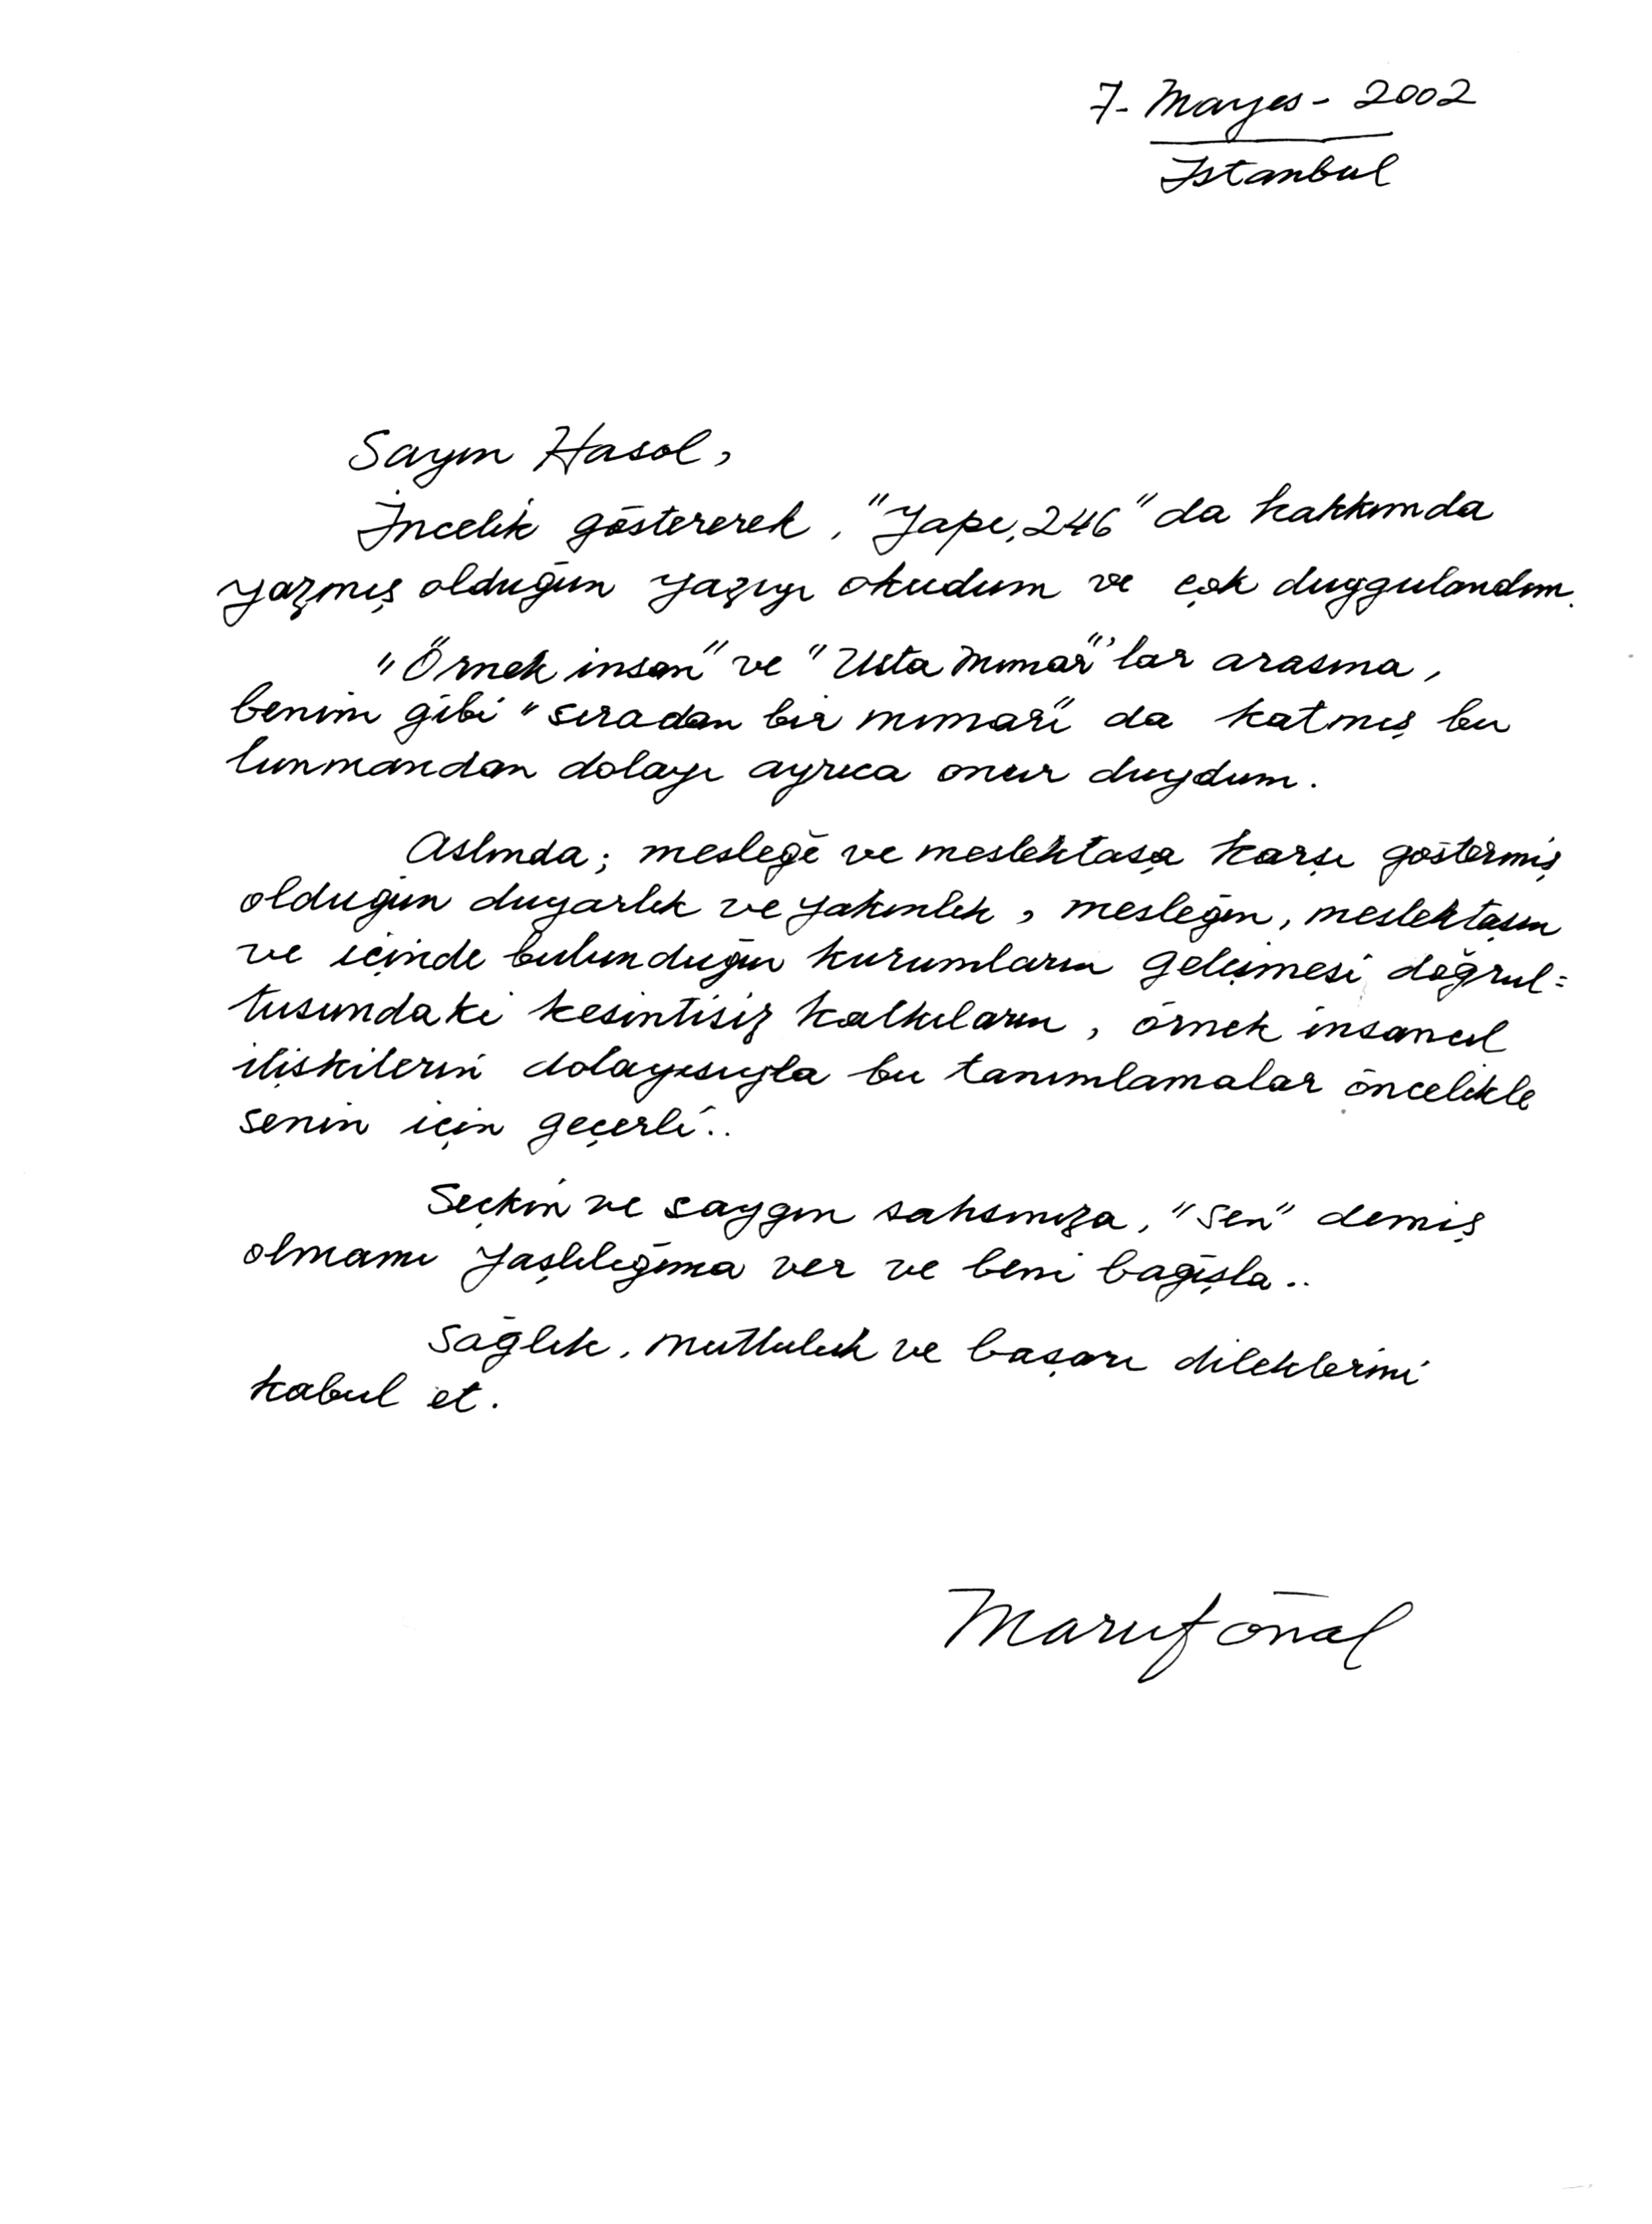 7- Mayıs - 2002
İstanbul
Sayın Hasol,
İncelik göstererek, "Yapı, 246" da hakkımda
yazmış olduğun yazıyı okudum ve çok duygulandım.
"Örnek insan" ve "Usta Mimar"'lar arasına,
benim gibi "sıradan bir mimarı" da katmış bu
lunmandan dolayı ayrıca onur duydum.
Aslında; mesleğe ve meslektaşa karşı göstermiş
olduğun duyarlık ve yakınlık, mesleğin, meslektaşın
ve içinde bulunduğun kurumların gelişmesi doğrul=
tusundaki kesintisiz katkıların, örnek insancıl
ilişkilerin dolayısıyla bu tanımlamalar öncelikle
senin için geçerli..
Seçkin ve saygın şahsınıza, "sen" demiş
olmamı yaşlılığıma ver ve beni bağışla..
Sağlık, mutluluk ve başarı dileklerimi
kabul et.
Maruf Önal